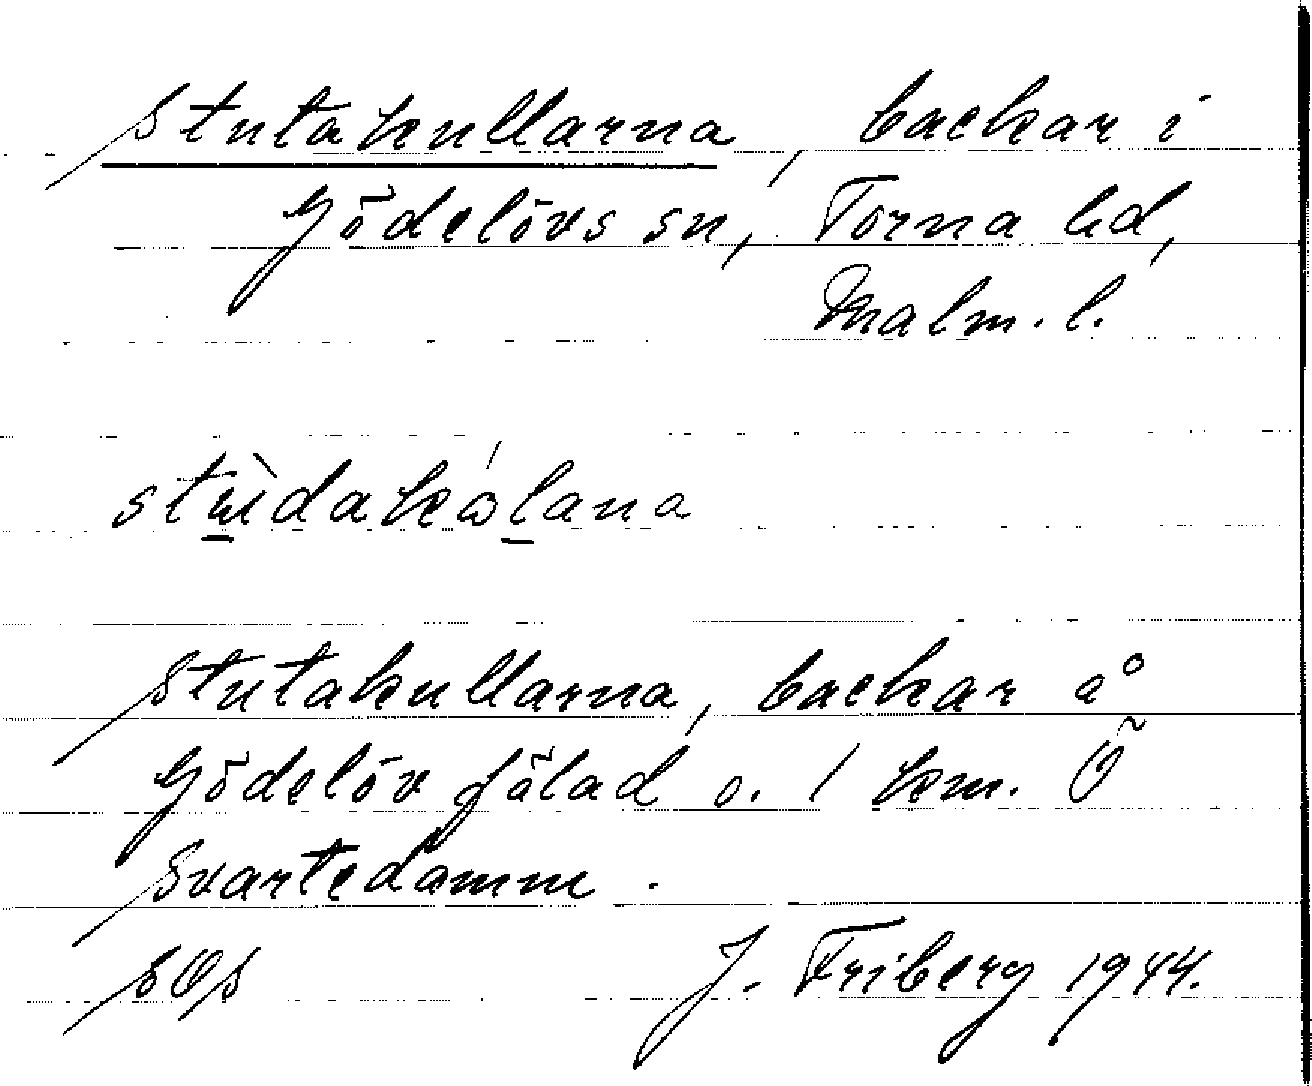 Stutakullarna, backar i
Gödelövs sn, Torna hd,
Malm. l.
Stutakullarna, backar å
Gödelöv fälad o. 1 km. Ö
Svartedamm.
J. Friberg 1944.